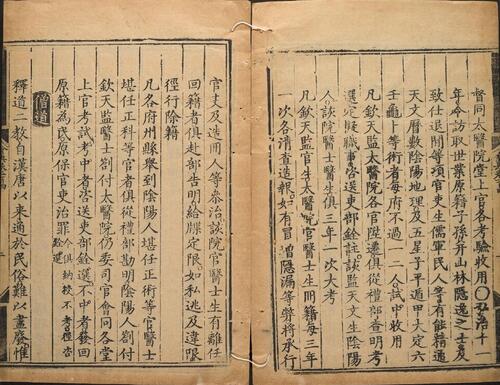 督同太醫院堂上官各考驗收用○弘治十一
年令訪取世業原籍子孫并山林隱逸之士及
致仕退閒等項官吏生儒軍民人等有能精通
天文曆數陰陽地理及五星子平遁甲大定六
壬龜卜等術者每府不過一二人試中收用
凡欽天監太醫院各官陞遷俱從禮部查明考
選定擬職事咨送吏部銓註該監天文生陰陽
人該院醫士醫生俱三年一次大考
凡欽天監官生太醫院官醫士生冊籍每三年
一次各清查造報如有冒增隱漏等弊將承行
官吏及造冊人等叅治該院官醫士生有離任
回籍者俱赴部告明給牒定限如私逃及違限
徑行除籍
凡各府州縣舉到陰陽人堪任正術等官醫士
堪任正科等官者俱從禮部勘明陰陽人劄付
欽天監醫士劄付太醫院仍委司官會同各堂
上官考試考中者咨送吏部銓選不中者發回
原籍為民原保官吏治罪今俱納授不考徑咨銓選
僧道
釋道二教自漢唐以來通於民俗難以盡廢惟